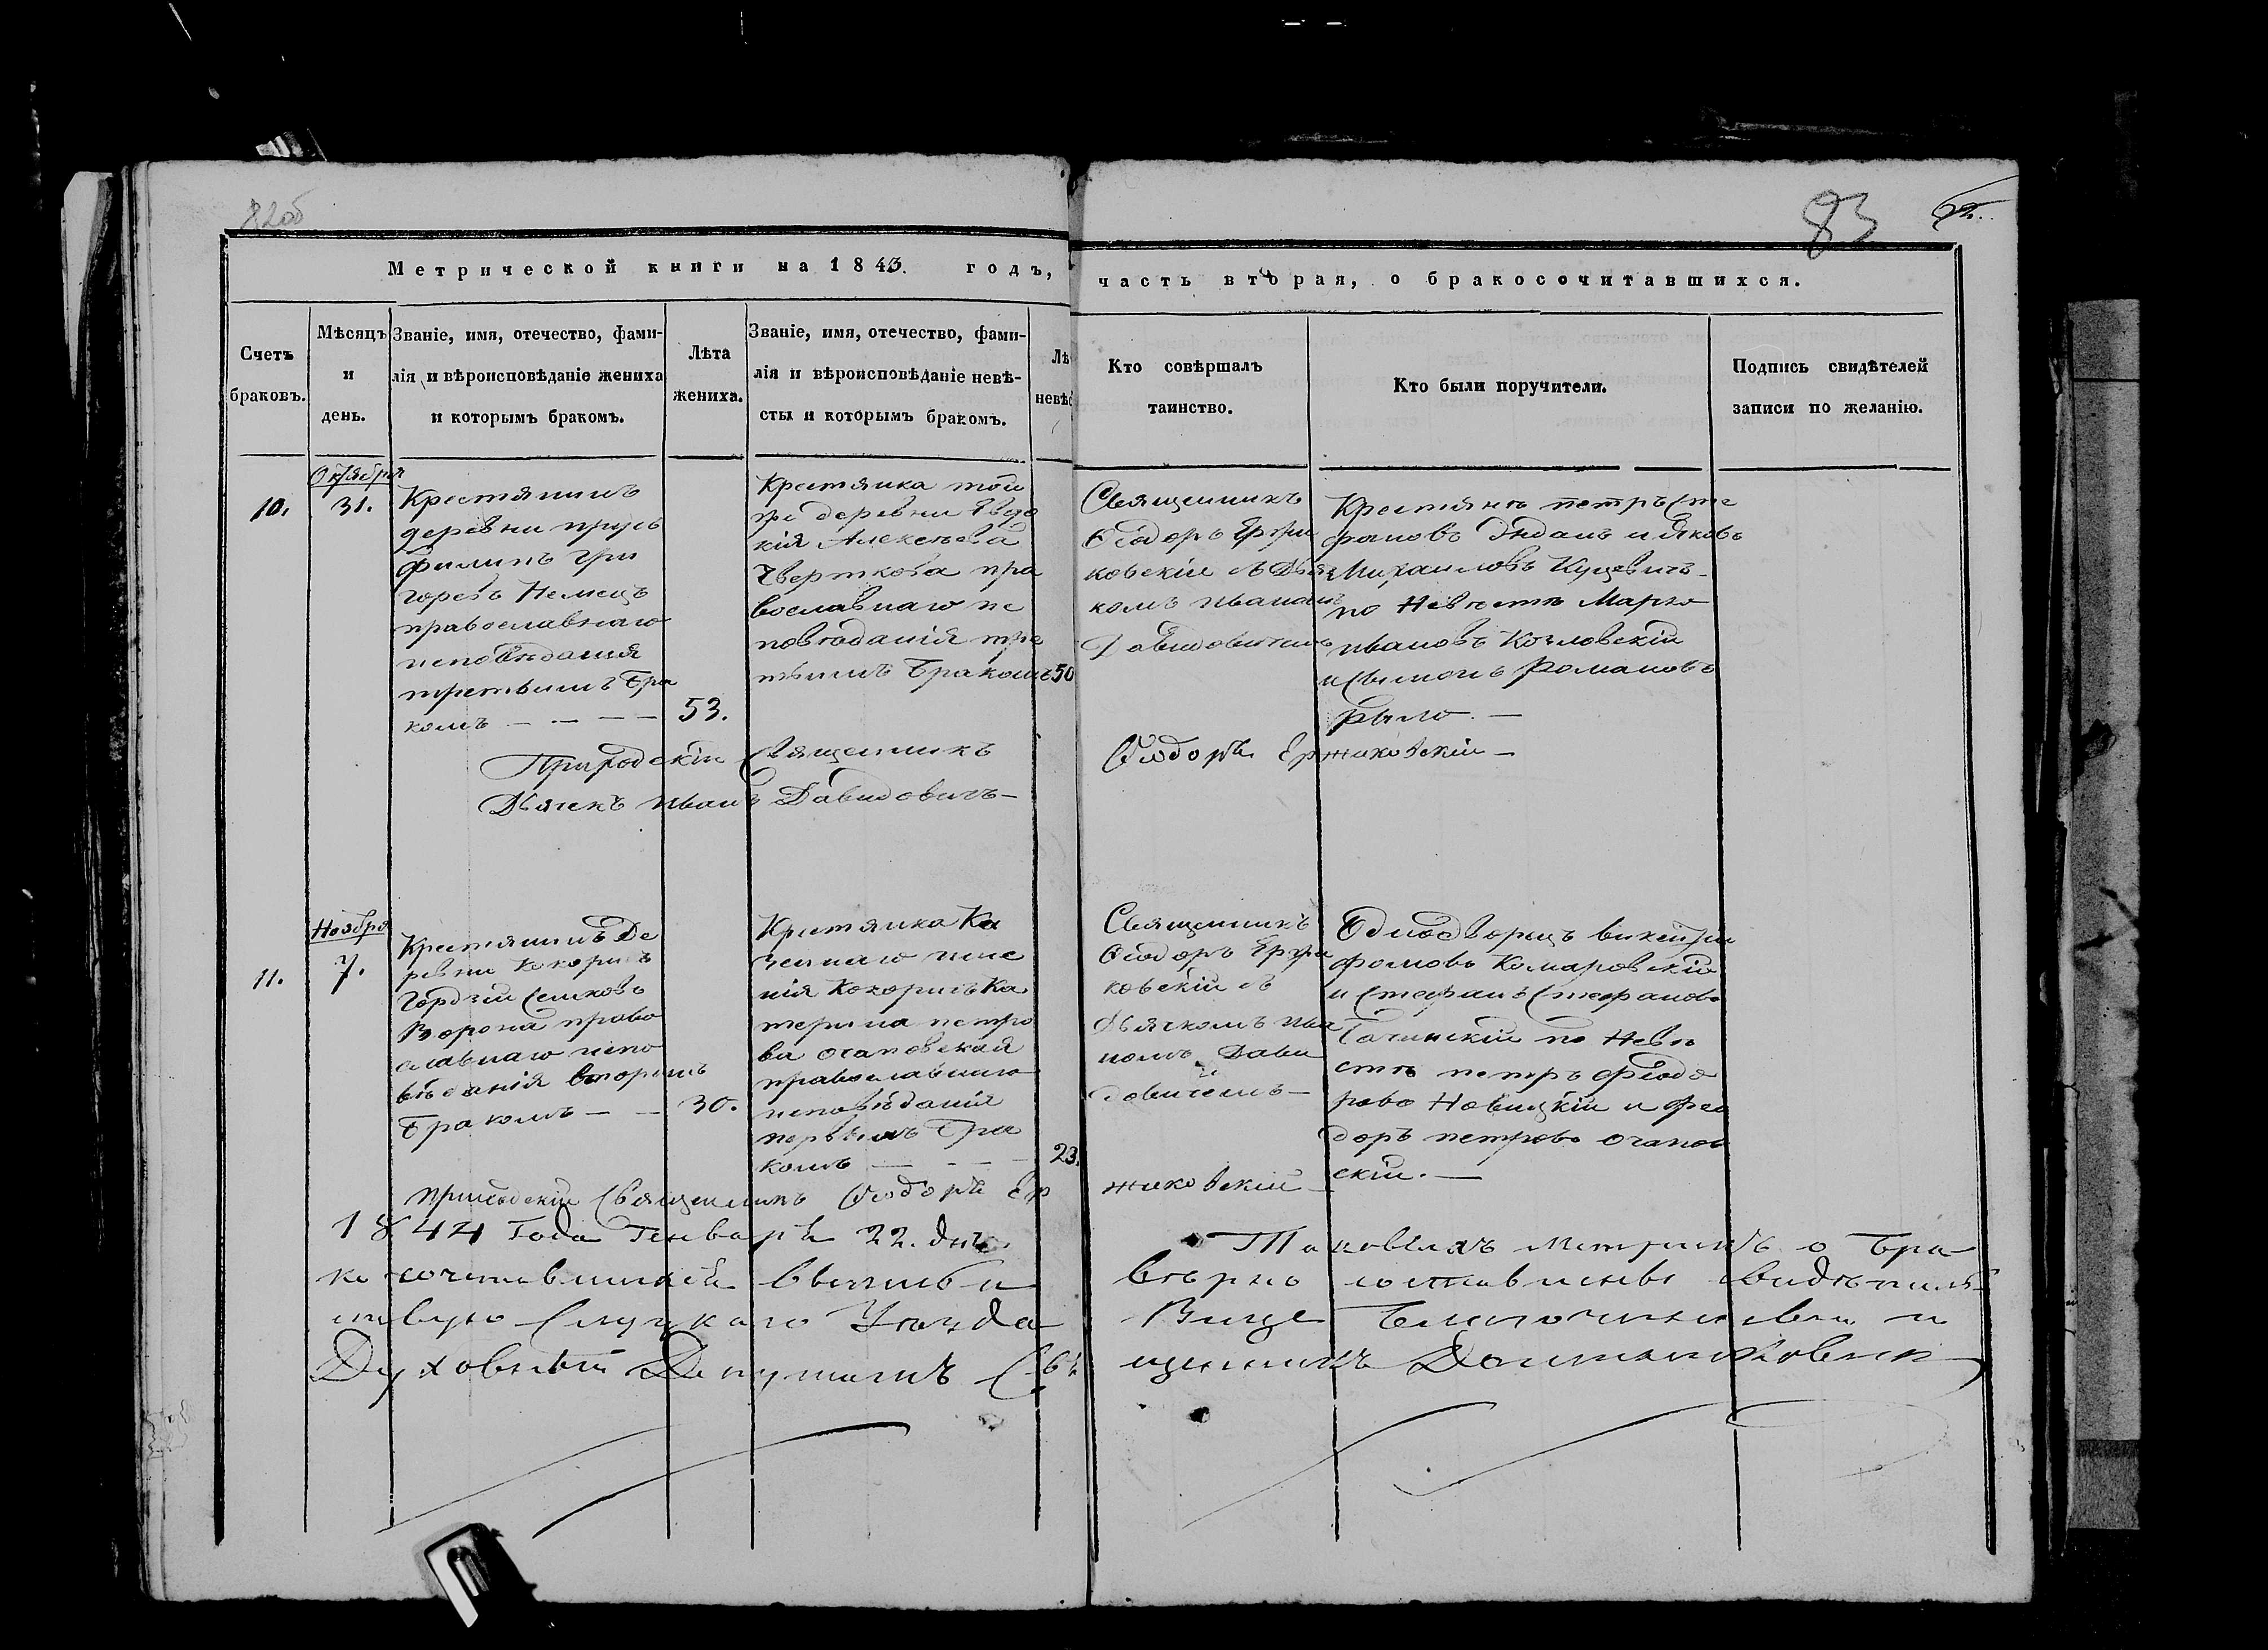 82об
83
Метрической книги на 1843. годъ,
часть вторая, о бракосочитавшихся.
Счетъ браковъ.
Мѣсяцъ и день.
Званіе, имя, отечество, фами-
лія и вѣроисповѣданіе жениха
и которымъ бракомъ.
Лѣта жениха.
Званіе, имя, отечество, фами-
лія и вѣроисповѣданіе невѣ-
сты и которымъ бракомъ.
Лѣ
невѣс
Кто совѣршалъ
таинство.
Кто были поручители.
Подпись свидѣтелей
записи по желанію.
10.
Октября
31.
Крестянинъ
деревни прусъ
Филипъ Гри
горевъ Немецъ
православнаго
исповѣданія
третьимъ бра
комъ
53.
Крестянка той
же деревни Евдо
кія Алексѣева
Чверткова пра
вославнаго ис
повѣданія тре
тьимъ бракомъ
50
Священникъ
Ѳеодоръ Ержи
ковскій съ Дьяч
комъ иваномъ
Давидовичемъ
Крестянъ петръ Сте
фановъ и яковъ
Михаиловъ Куцевичъ
по Невѣстѣ Марко
ивановъ Козловскій
и Сымонъ Романовъ
рыло.
Приходскій Священникъ
Ѳеодоръ Ержиковскій
Дьячекъ иванъ Давидовичъ
11.
Ноября
7.
Крестянинъ Де
ревни Кокоричъ
Гордзій Семіоновъ
Ворона право
славнаго испо
вѣданія вторымъ
бракомъ
30.
Крестянка Ка
зеннаго имѣ
нія Кокоричъ Ка
терина петро
ва очаповская
православнаго
исповѣданія
первымъ бра
комъ
23.
Священникъ
Ѳеодоръ Ержи
ковскій съ
Дьячкомъ ива
номъ Дави
довичемъ
Однодворецъ викентій
фомовъ Комаровскій
и Стефанъ Стефановъ
по Невѣ
стѣ петръ Феодо
ровъ Новицкій и Фео
доръ петровъ очапов
скій.
приходскій Священникъ Ѳеодоръ Ер
жиковскій
1844 Года Генваря 22. дня
Таковыхъ метрикъ о бра
косочетавшихся
вѣрно
Слуцкаго Уѣзда
Вице Благочинный и
Духовный Депутатъ Свя
щенникъ